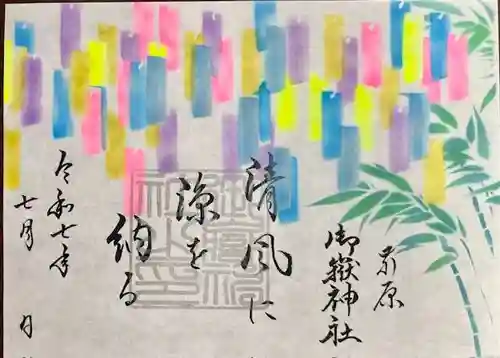 前原
御嶽神社
清風に
涼を
納る
令和七年
七月　日